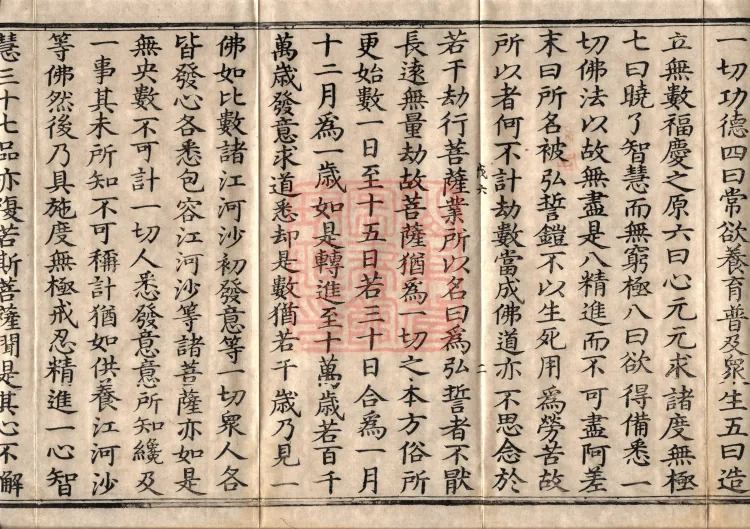 一切功德四曰常欲養育普及衆生五曰造
立無數福慶之原六曰心元元求諸度無極
七曰曉了智慧而無窮極八曰欲得備悉一
切佛法以故無盡是八精進而不可盡阿差
末曰所名被弘誓鎧不以生死用爲勞苦故
所以者何不計劫數當成佛道亦不思念於
戍六
二
若干劫行菩薩業所以名曰爲弘誓者不厭
長遠無量劫故菩薩猶爲一切之本方俗所
更始數一日至十五日若三十日合爲一月
十二月爲一歲如是轉進至十萬歲若百千
萬歲發意求道悉却是數猶若干歲乃見一
佛如比數諸江河沙初發意等一切衆人各
皆發心各悉包容江河沙等諸菩薩亦如是
無央數不可計一切人悉發意意所知纔及
一事其未所知不可稱計猶如供養江河沙
等佛然後乃具施度無極戒忍精進一心智
慧三十七品亦復若斯菩薩聞是其心不懈